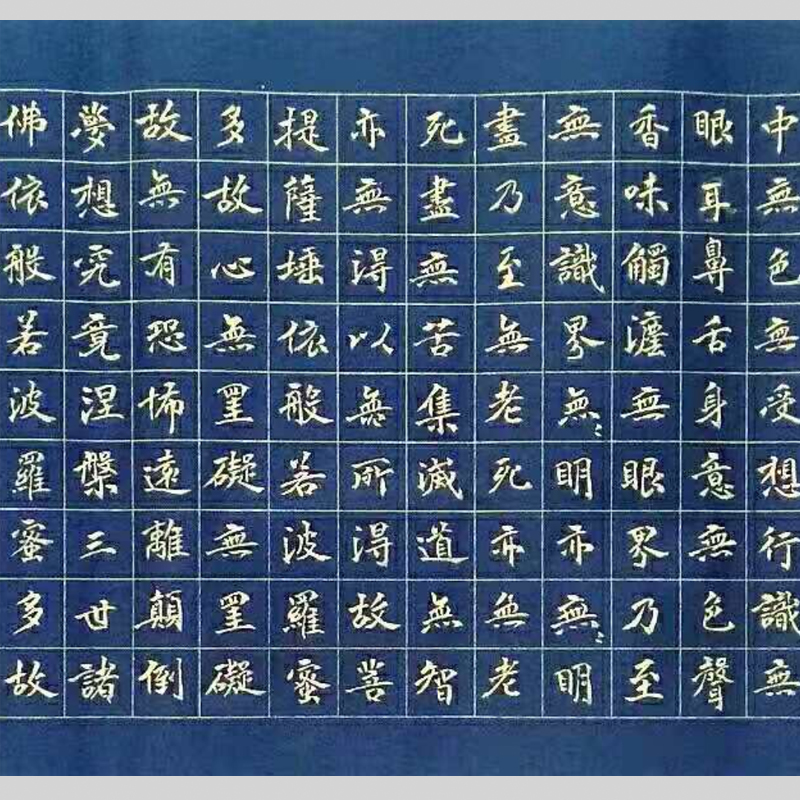 中無色無受想行識無
眼耳鼻舌身意無色聲
香味觸灋無眼界乃至
無意識界無〻明亦無〻明
盡乃至無老死亦無老
死盡無苦集滅道無智
亦無得以無所得故菩
提薩埵依般若波羅蜜
多故心無罣礙無罣礙
故無有恐怖遠離顛倒
夢想究竟涅槃三世諸
佛依般若波羅蜜多故